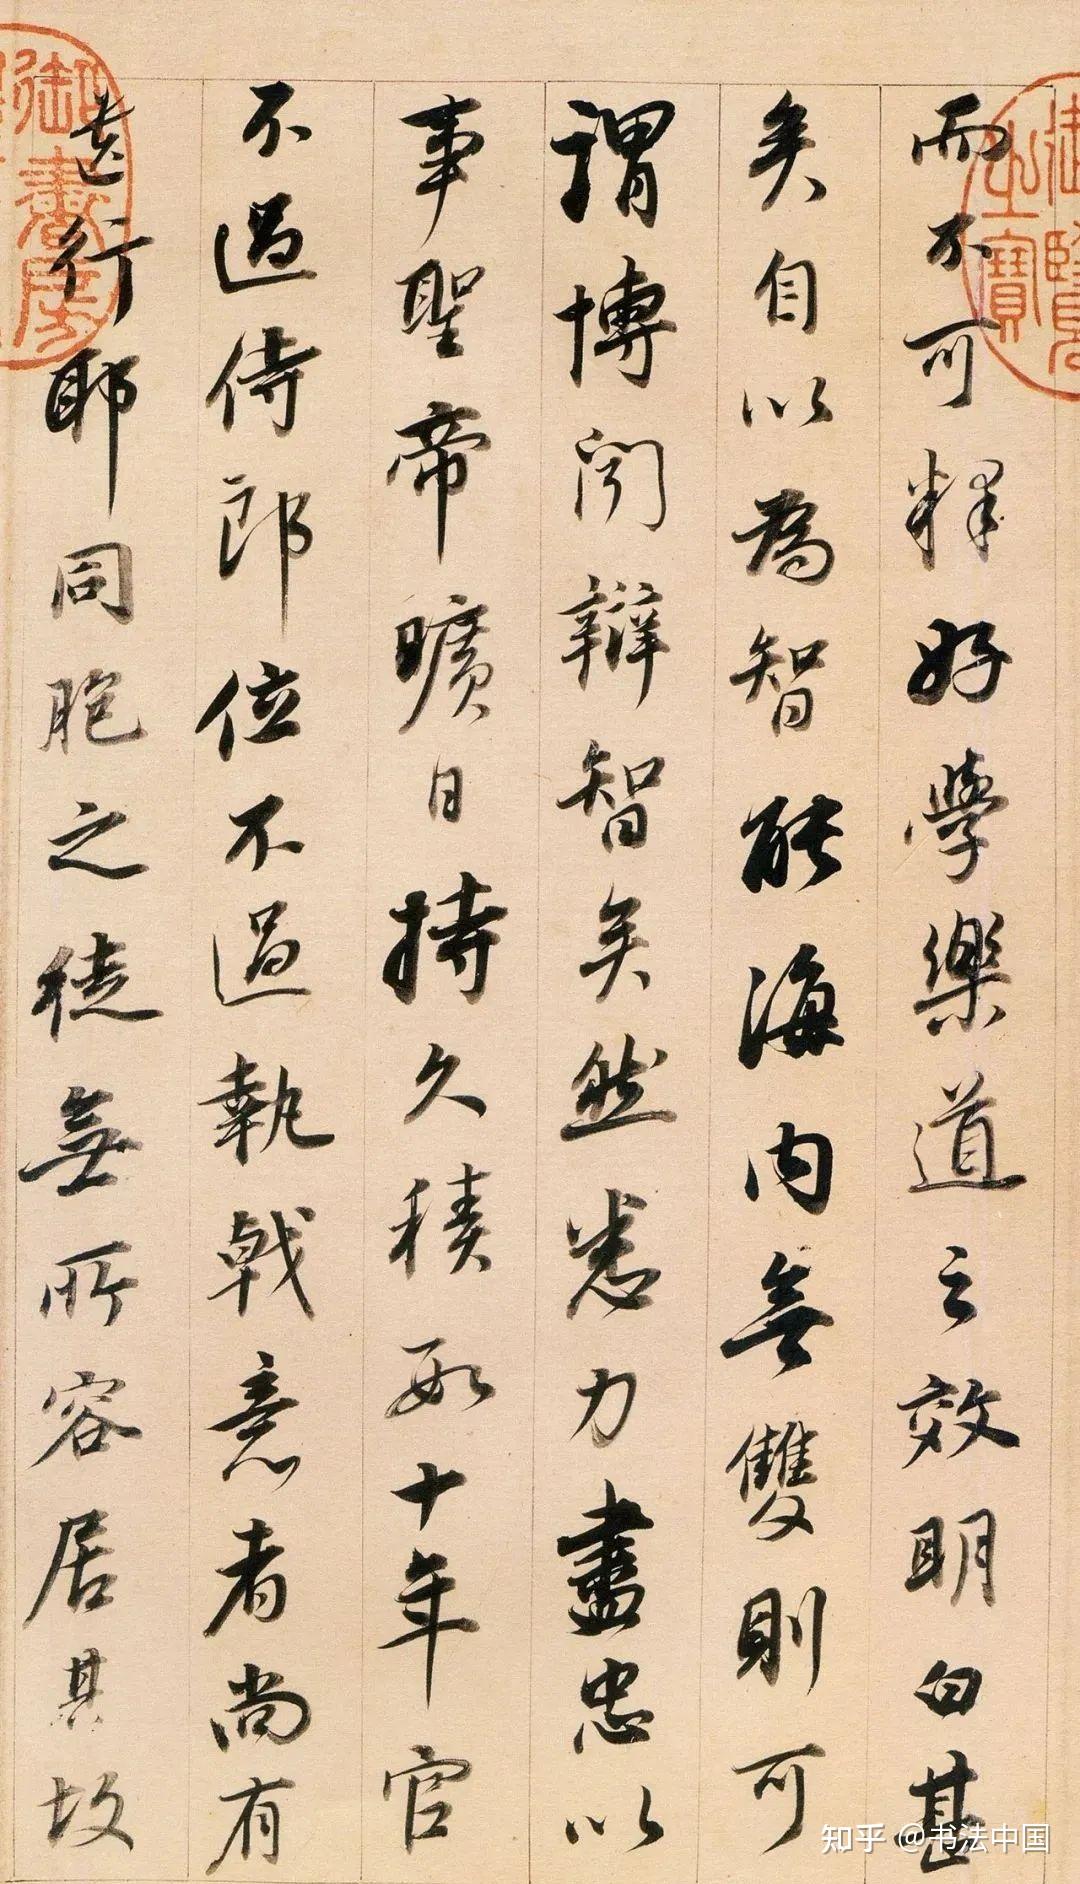 而不可釋好學樂道之效明白甚
矣自以為智能海内無雙則可
謂博聞辯智矣然悉力盡忠以
事聖帝曠日持久積數十年官
不過侍郎位不過執戟意者尚有
遺行耶同胞之徒無所容居其故
御書房
御覽
寶
知乎 @书法中国